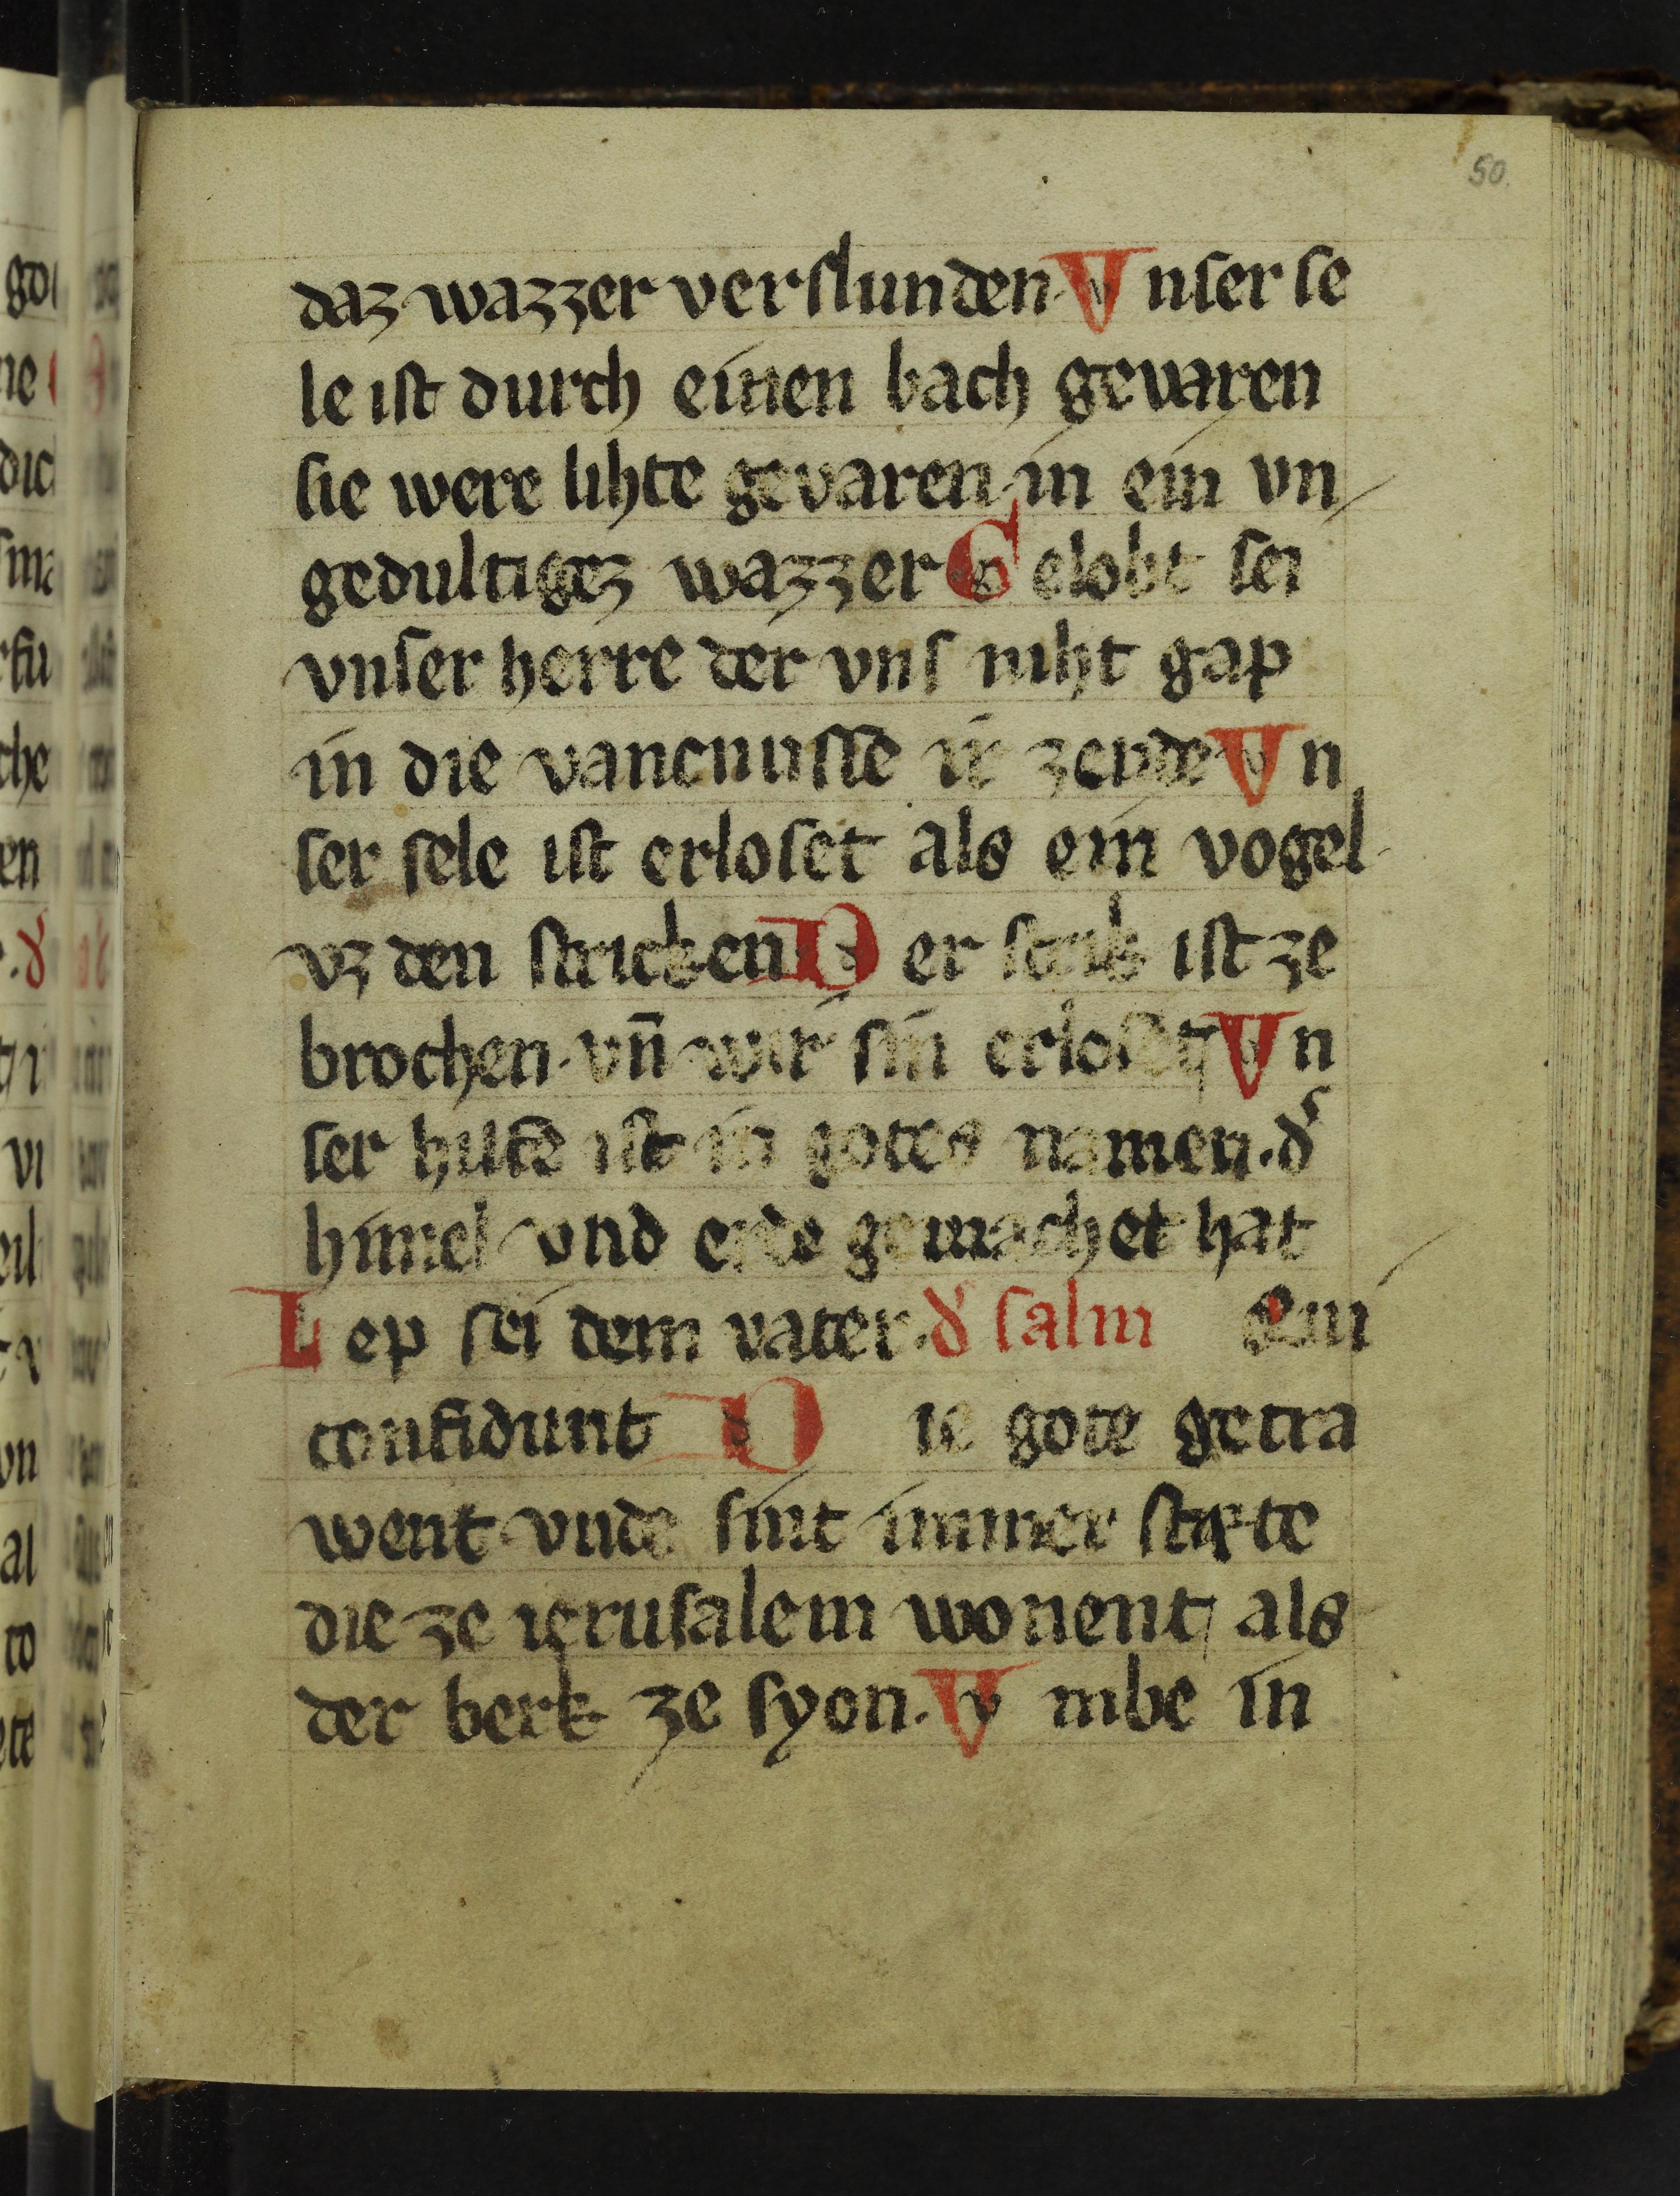 50.
daz wazzer verslunden. Vnser se
le ist durch einen bach gevaren
sie were lihte gevaren in ein vn
gedultigez wazzer Gelobt sei
vnser herre der vns niht gap
in die vancnusse ir zende Vn
ser sele ist erloset als ein vogel
vz den stricken Der strik ist ze
brochen. vn̄ wir sin erloset Vn
ser hilfe ist in gotes namen. d͛
himel vnd erde gemachet hat
Lep sei dem vater. d͛ salm Qui
confidunt Die gote getra
went vnde sint immer stæte
die ze ierusalem wonent als
der berk ze syon. Vmbe in